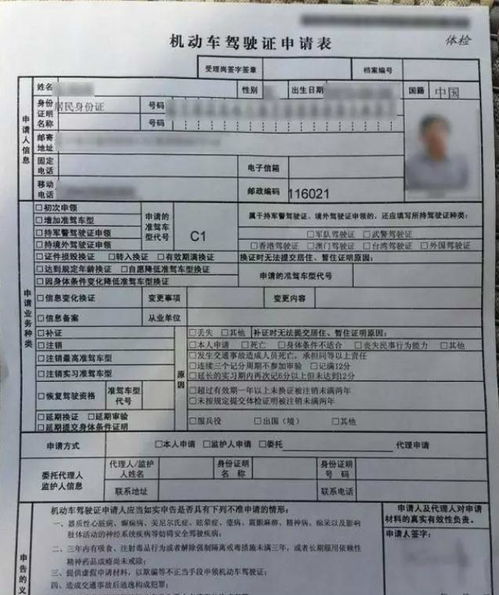 机动车驾驶证申请表
体检
受理岗签字签章 档案编号
申请人信息
姓名 性别 出生日期 国籍 中国
身份证明名称 居民身份证 号码
号码
邮寄地址
固定电话 电子信箱
移动电话 邮政编码 116021
申请业务种类
□初次申领
□增加准驾车型
□持军警驾驶证申领
□持境外驾驶证申领
申请的准驾车型代号 C1
属于持军警驾驶证、境外驾驶证申领的，还应填写所持驾驶证种类：
□军队驾驶证 □武警驾驶证
□香港驾驶证 □澳门驾驶证 □台湾驾驶证 □外国驾驶证
□证件损毁换证 □转入换证 □有效期满换证 换证时无法提交居住、暂住证明原因：
□达到规定年龄换证 □自愿降低准驾车型换证
□因身体条件变化降低准驾车型换证
申请的准驾车型代号
□信息变化换证 变更事项 变更内容
□信息备案 从业单位
□补证 □丢失 □其他 补证时无法提交居住、暂住证明原因：
□注销 原因 □本人申请 □死亡 □身体条件不适合 □丧失民事行为能力 □其他
□注销最高准驾车型 □发生交通事故造成人员死亡，承担同等以上责任
□连续三个记分周期不参加审验 □记满12分
□注销实习准驾车型 □延长的实习期内再次记6分以上但未达到12分
□恢复驾驶资格 准驾车型代号 □超过有效期一年以上未换证被注销未满两年
□未按规定提交体检证明被注销未满两年
□延期换证 □延期审验
□延期提交身体条件证明
□服兵役 □出国（境） □其他
申请方式 □本人申请 □监护人申请 □委托 代理申请
委托代理人监护人信息 代理人/监护人姓名 身份证明名称 身份证明号码
联系地址 联系电话
机动车驾驶证申请人应当如实申告是否具有下列不准申请的情形：
一、器质性心脏病、癫痫病、美尼尔氏症、眩晕症、癔病、震颤麻痹、精神病、痴呆以及影响
肢体活动的神经系统疾病等妨碍安全驾驶疾病；
二、三年内有吸食、注射毒品行为或者解除强制隔离戒毒措施未满三年，或者长期服用依赖性
精神药品成瘾尚未戒除；
三、提供虚假申请材料，以欺骗等不正当手段申领机动车驾驶证；
四、造成交通事故后逃逸构成犯罪；
申请人及代理人对申请
材料的真实有效性负责。
申请人签字：
申告的义